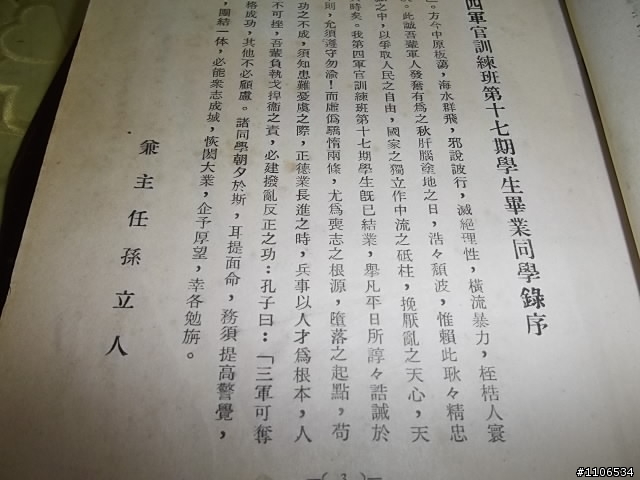 四軍官訓練班第十七期學生畢業同學錄序
」。方今中原板蕩，海水群飛，邪說詖行，滅絕理性，橫流暴力，桎梏人寰
。此誠吾輩軍人發奮有為之秋肝腦塗地之日，浩々頹波，惟賴此耿々精忠
之中，以爭取人民之自由，國家之獨立作中流之砥柱，挽厭亂之天心，天
時矣。我第四軍官訓練班第十七期學生旣已結業，舉凡平日所諄々誥誡於
則，允須遵守勿渝！而虛僞驕惰兩條，尤爲喪志之根源，墮落之起點，苟
功之不成，須知患難憂虞之際，正德業長進之時，兵事以人才爲根本，人
不可挫，吾輩負執戈捍衞之責，必建撥亂反正之功：孔子曰：「三軍可奪
格成功，其他不必顧慮。諸同學朝夕於斯，耳提面命，務須提高警覺，
，團結一体，必能衆志成城，恢閎大業，企予厚望，幸各勉旃。
兼主任孫立人
—( 3 )—
#1106534